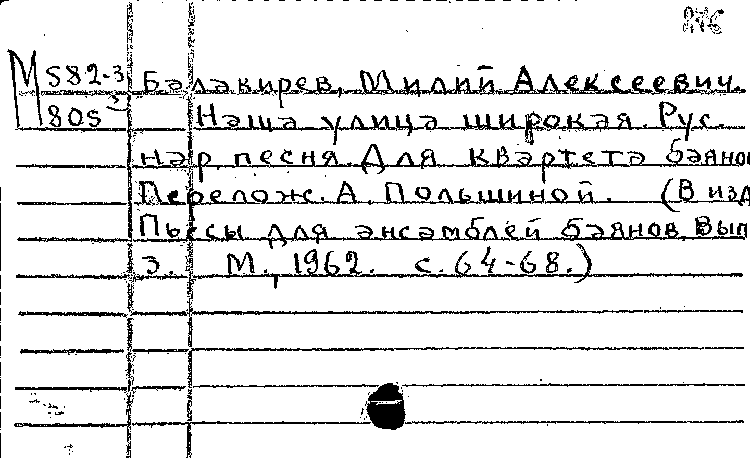 М 582-3 Балакирев, Милий Алексеевич.
805 Наша улица широкая. Рус.
нар. песня. Для квартета баянов
Перелож. А. Польшиной. (В изд
Пьесы для ансамблей баянов. Вып
3. М., 1962. с. 64-68.)